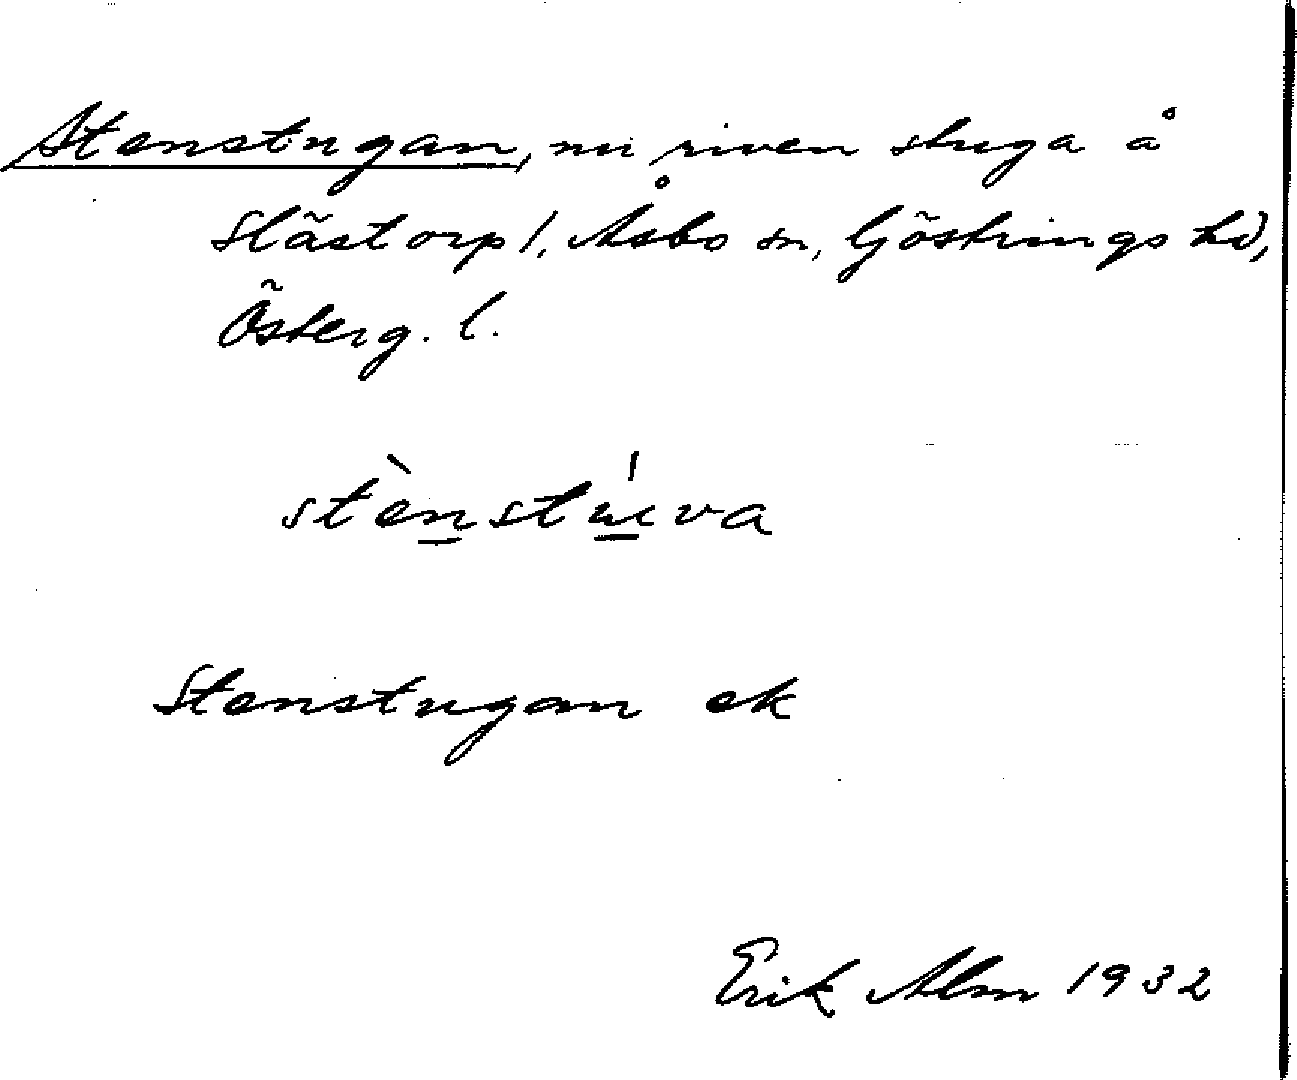 Stenstugan, nu riven stuga å
Slästorp 1, Åsbo sn, Göstrings hd,
Österg. l.
stènstúva
Stenstugan ek
Erik Alm 1932